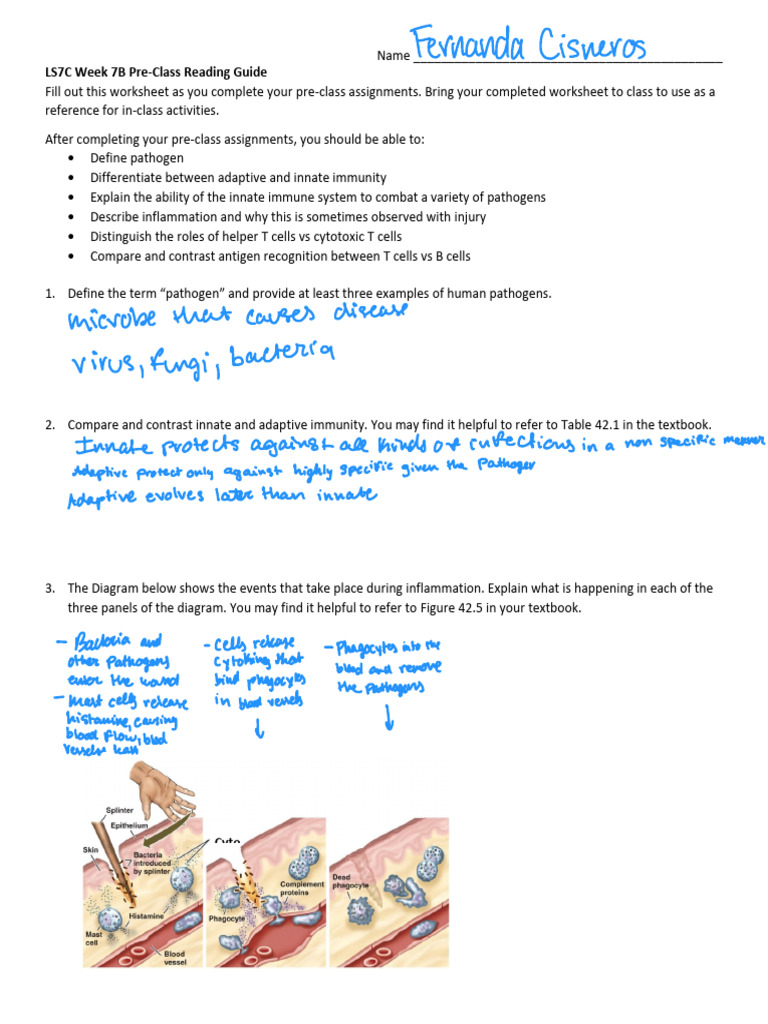 Name Fernanda Cisneros
LS7C Week 7B Pre-Class Reading Guide
Fill out this worksheet as you complete your pre-class assignments. Bring your completed worksheet to class to use as a
reference for in-class activities.
After completing your pre-class assignments, you should be able to:
• Define pathogen
• Differentiate between adaptive and innate immunity
• Explain the ability of the innate immune system to combat a variety of pathogens
• Describe inflammation and why this is sometimes observed with injury
• Distinguish the roles of helper T cells vs cytotoxic T cells
• Compare and contrast antigen recognition between T cells vs B cells
1. Define the term “pathogen” and provide at least three examples of human pathogens.
microbe that causes disease
virus, fungi, bacteria
2. Compare and contrast innate and adaptive immunity. You may find it helpful to refer to Table 42.1 in the textbook.
Innate protects against all kinds of infections in a non specific manner
Adaptive protect only against highly specific given the Pathogen
Adaptive evolves later than innate
3. The Diagram below shows the events that take place during inflammation. Explain what is happening in each of the
three panels of the diagram. You may find it helpful to refer to Figure 42.5 in your textbook.
- Bacteria and
other Pathogens
enter the
- mast cells release
histamine, causing
blood flow, blood
vessels leak
- Cells release
that
bind phagocytes
in blood vessels
- Phagocytes into the
blood and remove
the pathogens
Splinter
Epithelium
Skin
Bacteria
introduced
by splinter
Histamine
Mast
cell
Blood
vessel
Cyto
Complement
proteins
Phagocyte
Dead
phagocyte